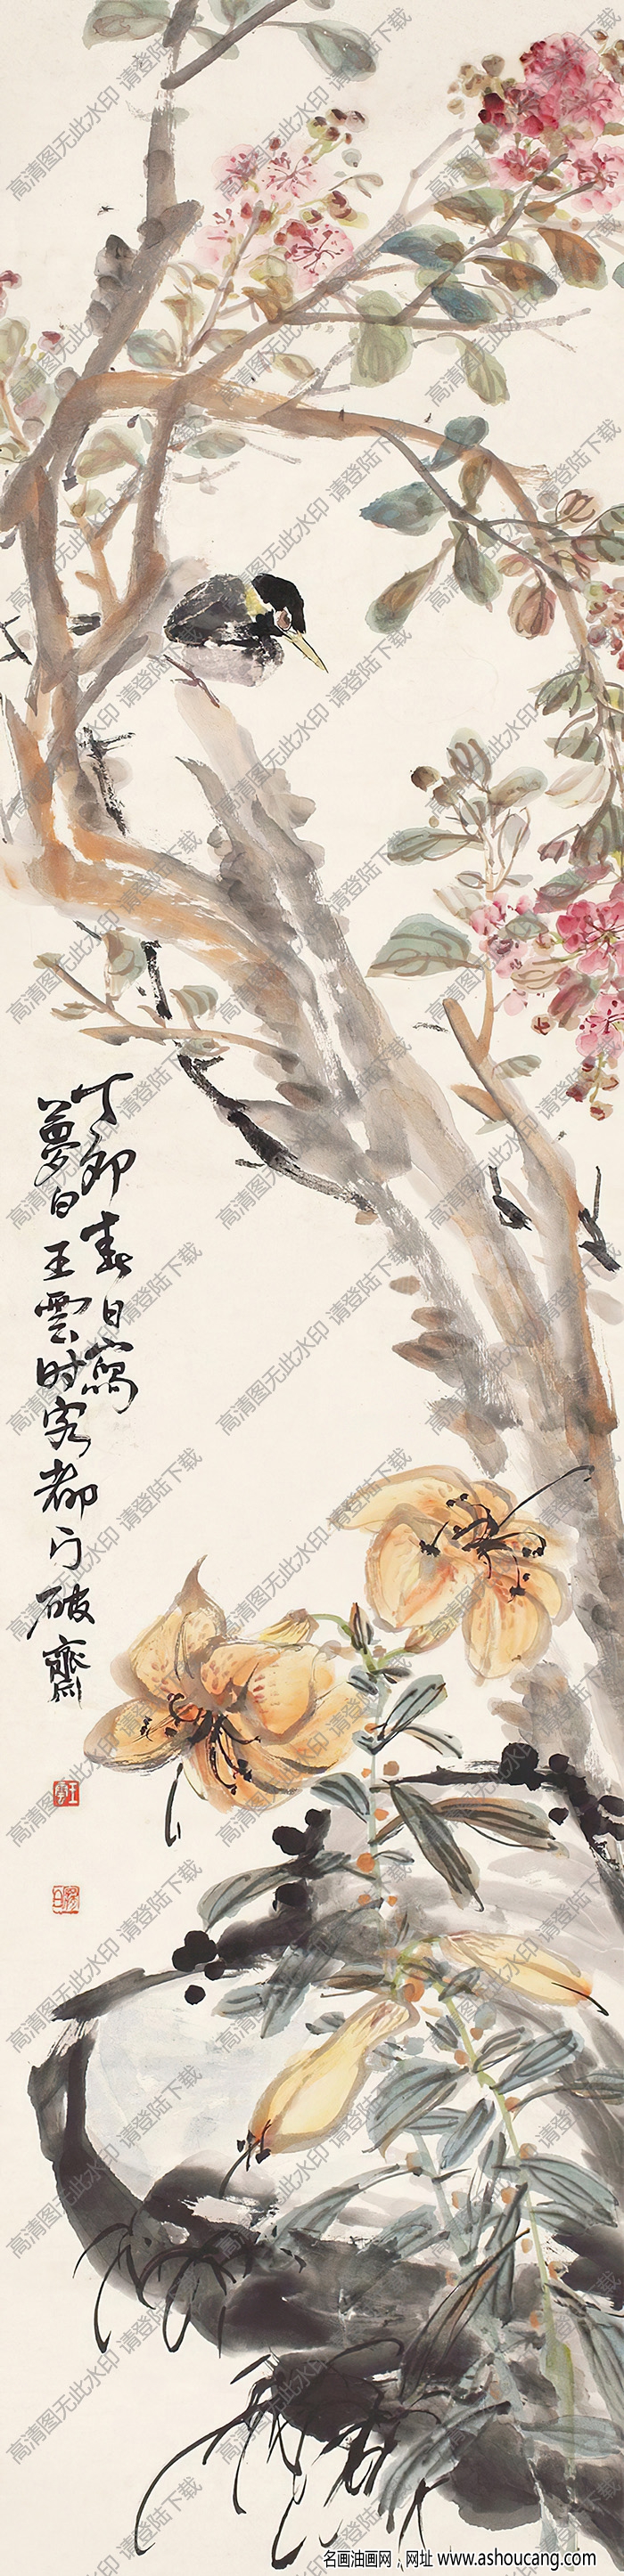 丁卯春日寫
夢白王雲时客都门破齋
王雲
夢白
高清图无此水印 请登陆下载
名画油画网，网址 www.ashoucang.com